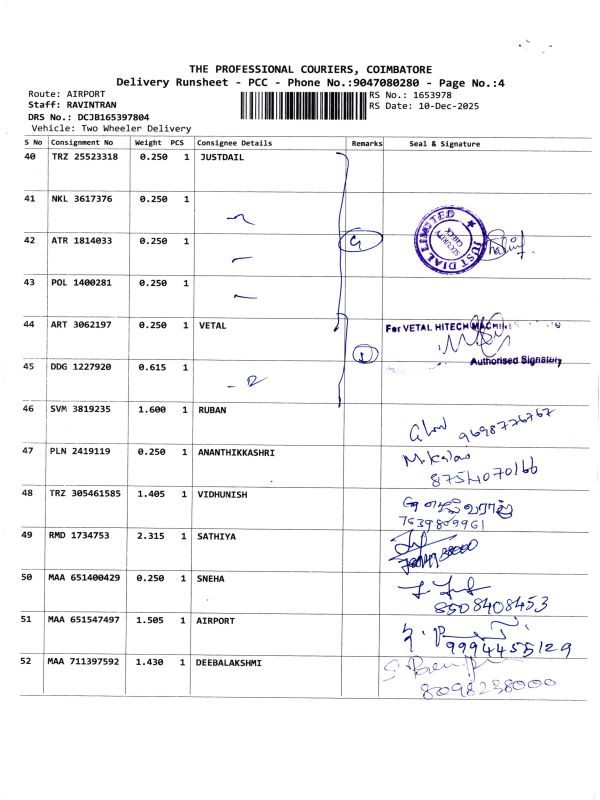 THE PROFESSIONAL COURIERS, COIMBATORE
Delivery Runsheet - PCC - Phone No.:9047080280 - Page No.:4
Route: AIRPORT
RS No.: 1653978
Staff: RAVINTRAN
RS Date: 10-Dec-2025
DRS No.: DCJB165397804
Vehicle: Two Wheeler Delivery
S No Consignment No Weight PCS Consignee Details Remarks Seal & Signature
40 TRZ 25523318 0.250 1 JUSTDAIL
41 NKL 3617376 0.250 1
42 ATR 1814033 0.250 1
JUST DIAL LIMITED
SECURITY CHECK
43 POL 1400281 0.250 1
44 ART 3062197 0.250 1 VETAL
For VETAL HITECH MACHIN
Authorised Signatory
45 DDG 1227920 0.615 1
46 SVM 3819235 1.600 1 RUBAN
9698776767
47 PLN 2419119 0.250 1 ANANTHIKKASHRI
8754070166
48 TRZ 305461585 1.405 1 VIDHUNISH
7639809961
49 RMD 1734753 2.315 1 SATHIYA
50 MAA 651400429 0.250 1 SNEHA
8508408453
51 MAA 651547497 1.505 1 AIRPORT
9994455129
52 MAA 711397592 1.430 1 DEEBALAKSHMI
8098238000